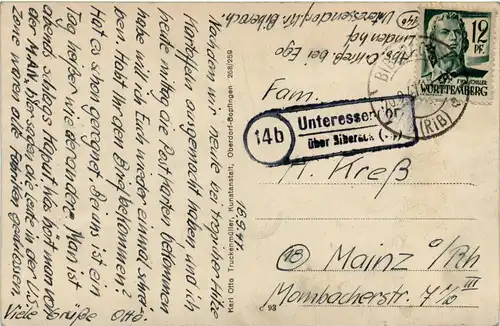 (14b) Unteressendorf, Kr. Biberach.
Abs. Otfried, bei Ego
Lindenhof
18.9.47.
Nachdem wir heute bei tropischer Hitze
Kartoffeln ausgemacht haben und ich
heute mittag die Postkarten bekommen
habe, wird Euch wieder einmal schrie-
ben. Habt Ihr den Brief bekommen?
Hat es schon geregnet. Bei uns ist ein
Tag heißer wie der andere. Man ist
abends schlags kaput. Was hört man von
der M.A.N. Hier sagen die Leute in der U.S.
Zone wären alle Fabriken geschlossen
Viele Grüße Otto.
Karl Otto Truckenmüller, Kunstanstalt, Oberdorf-Bopfingen 258/259
C 93
12
PF.
F. V. SCHILLER
WÜRTTEMBERG
(RIß) a
14b
Unteressendorf
über Biberach
Fam.
H. Kreß
(18) Mainz a/Rh
Mombacherstr. 7/10 III